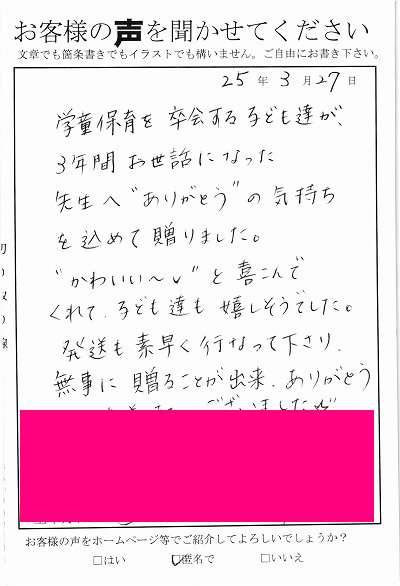 お客様の声を聞かせてください
文章でも箇条書きでもイラストでも構いません。ご自由にお書き下さい。
25年3月27日
学童保育を卒会する子ども達が、
3年間お世話になった
先生へ"ありがとう"の気持ち
を込めて贈りました。
"かわいい〜"と喜こんで
くれて、子ども達も嬉しそうでした。
発送も素早く行なって下さり、
無事に贈ることが出来、ありがとう
ございました
お客様の声をホームページ等でご紹介してよろしいでしょうか？
□はい □匿名で □いいえ